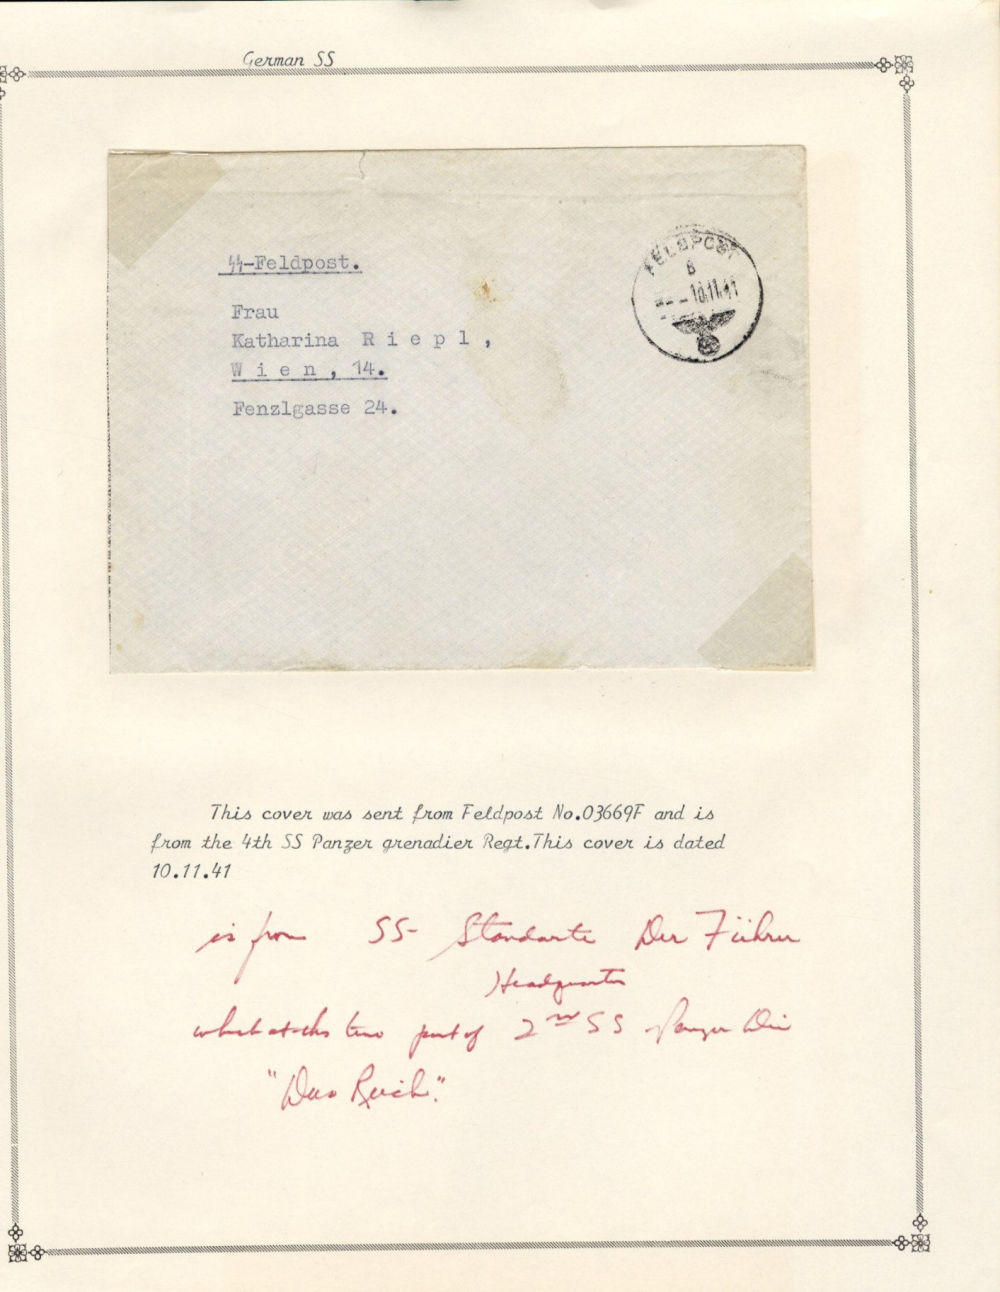 German SS
ᛋᛋ-Feldpost.
FELDPOST
B
10.11.41
Frau
Katharina R i e p l ,
W i e n , 14.
Fenzlgasse 24.
This cover was sent from Feldpost No.03669F and is
from the 4th SS Panzer grenadier Regt.This cover is dated
10.11.41
is from SS- Standarte Der Führer
Headquarters
which at this time part of 2nd SS Panzer Div
"Das Reich".